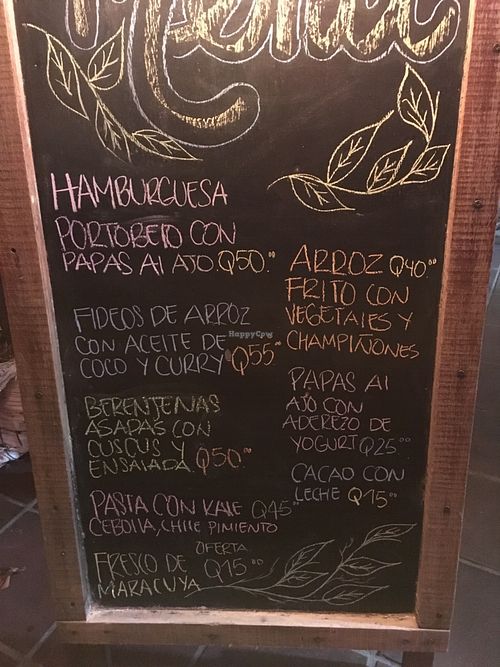 Menu
HAMBURGUESA
PORTOBELO CON
PAPAS Al AJO. Q50.00
FIDEOS DE ARROZ
CON ACEITE DE
COCO Y CURRY Q55.00
BERENJENAS
ASADAS CON
CUSCUS Y
ENSAlADA. Q50.00
PASTA CON KAlE Q45.00
CEBOllA, CHILE PIMIENTO
FRESCO DE
MARACUYA
OFERTA
Q15.00
ARROZ Q40.00
FRITO CON
VEGETAlES Y
CHAMPIÑONES
PAPAS Al
AJO CON
ADEREZO DE
YOGURT Q25.00
CACAO CON
lECHE Q15.00
HappyCow